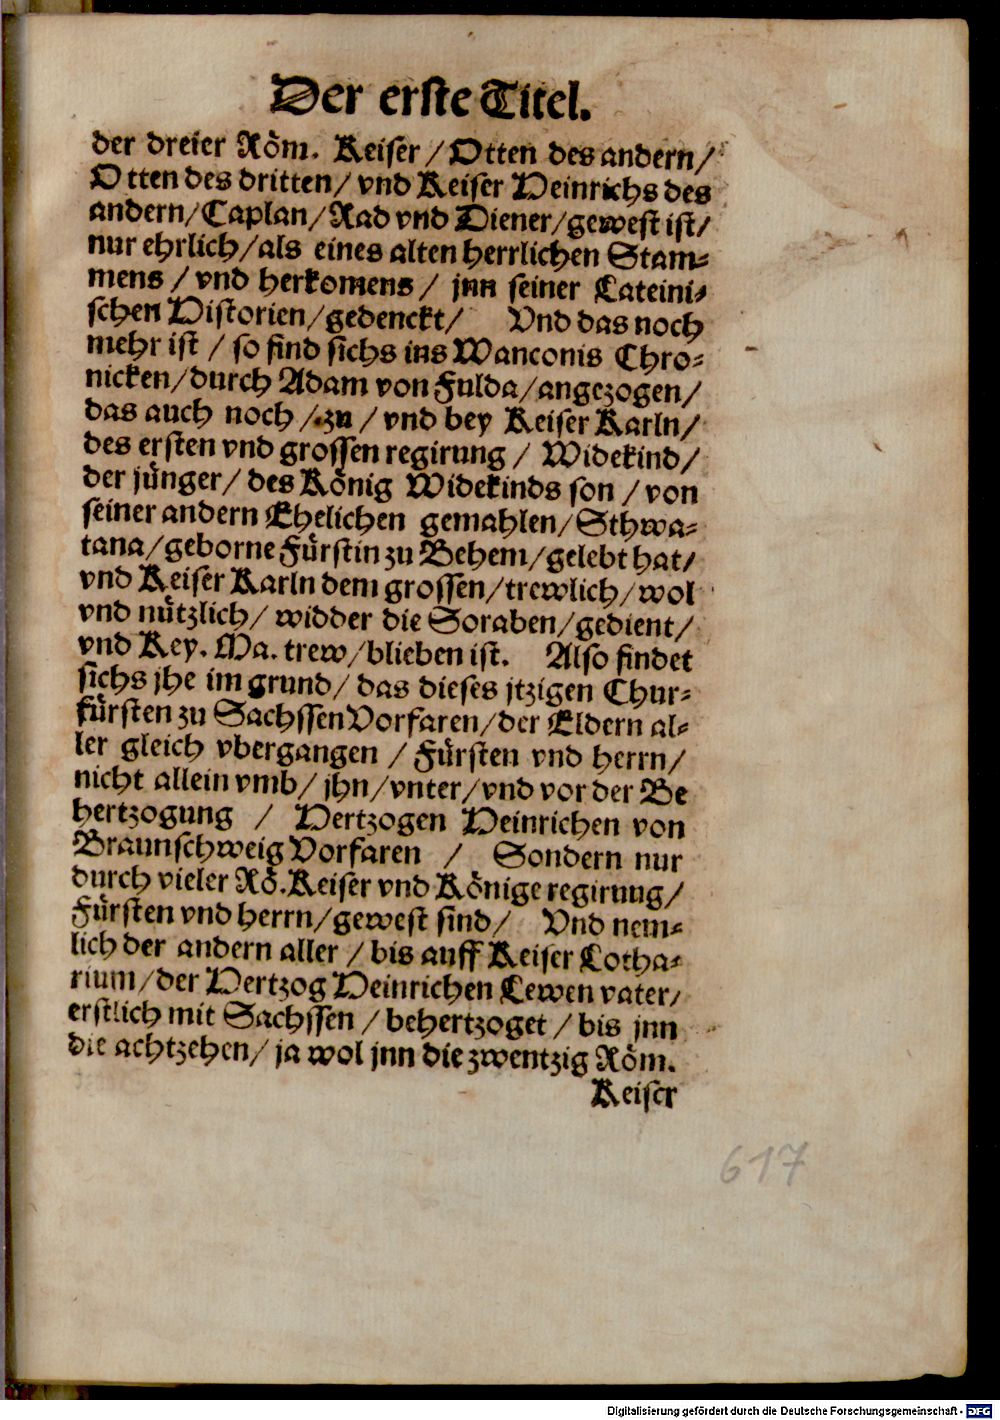 Der erste Titel.
der dreier Röm. Keiser / Otten des andern /
Otten des dritten / vnd Keiser Heinrichs des
andern / Caplan / Rad vnd Diener / gewest ist /
nur ehrlich / als eines alten herrlichen Stam-
mens / vnd herkomens / jnn seiner Lateini-
schen Historien / gedenckt / Vnd das noch
mehr ist / so find sichs ins Manconis Chro-
nicken / durch Adam von Fulda / angezogen /
das auch noch / zu / vnd bey Keiser Karln /
des ersten vnd grossen regirung / Widekind /
der jünger / des König Widekinds son / von
seiner andern Ehelichen gemahlen / Sthwa-
tana / geborne Fürstin zu Behem / gelebt hat /
vnd Keiser Karln dem grossen / trewlich / wol
vnd nützlich / widder die Soraben / gedient /
vnd Key. Ma. trew / blieben ist. Also findet
sichs jhe im grund / das dieses jtzigen Chur-
fürsten zu Sachssen Vorfaren / der Eldern al-
ler gleich vbergangen / Fürsten vnd herrn /
nicht allein vmb / jhn / vnter / vnd vor der Be
hertzogung / Hertzogen Heinrichen von
Braunschweig Vorfaren / Sondern nur
durch vieler Rö. Keiser vnd Könige regirung /
Fürsten vnd herrn / gewest sind / Vnd nem-
lich der andern aller / bis auff Keiser Lotha-
rium / der Hertzog Heinrichen Lewen vater /
erstlich mit Sachssen / behertzoget / bis jnn
die achtzehen / ja wol jnn die zwentzig Röm.
Keiser
617
Digitalisierung gefördert durch die Deutsche Forschungsgemeinschaft - DFG